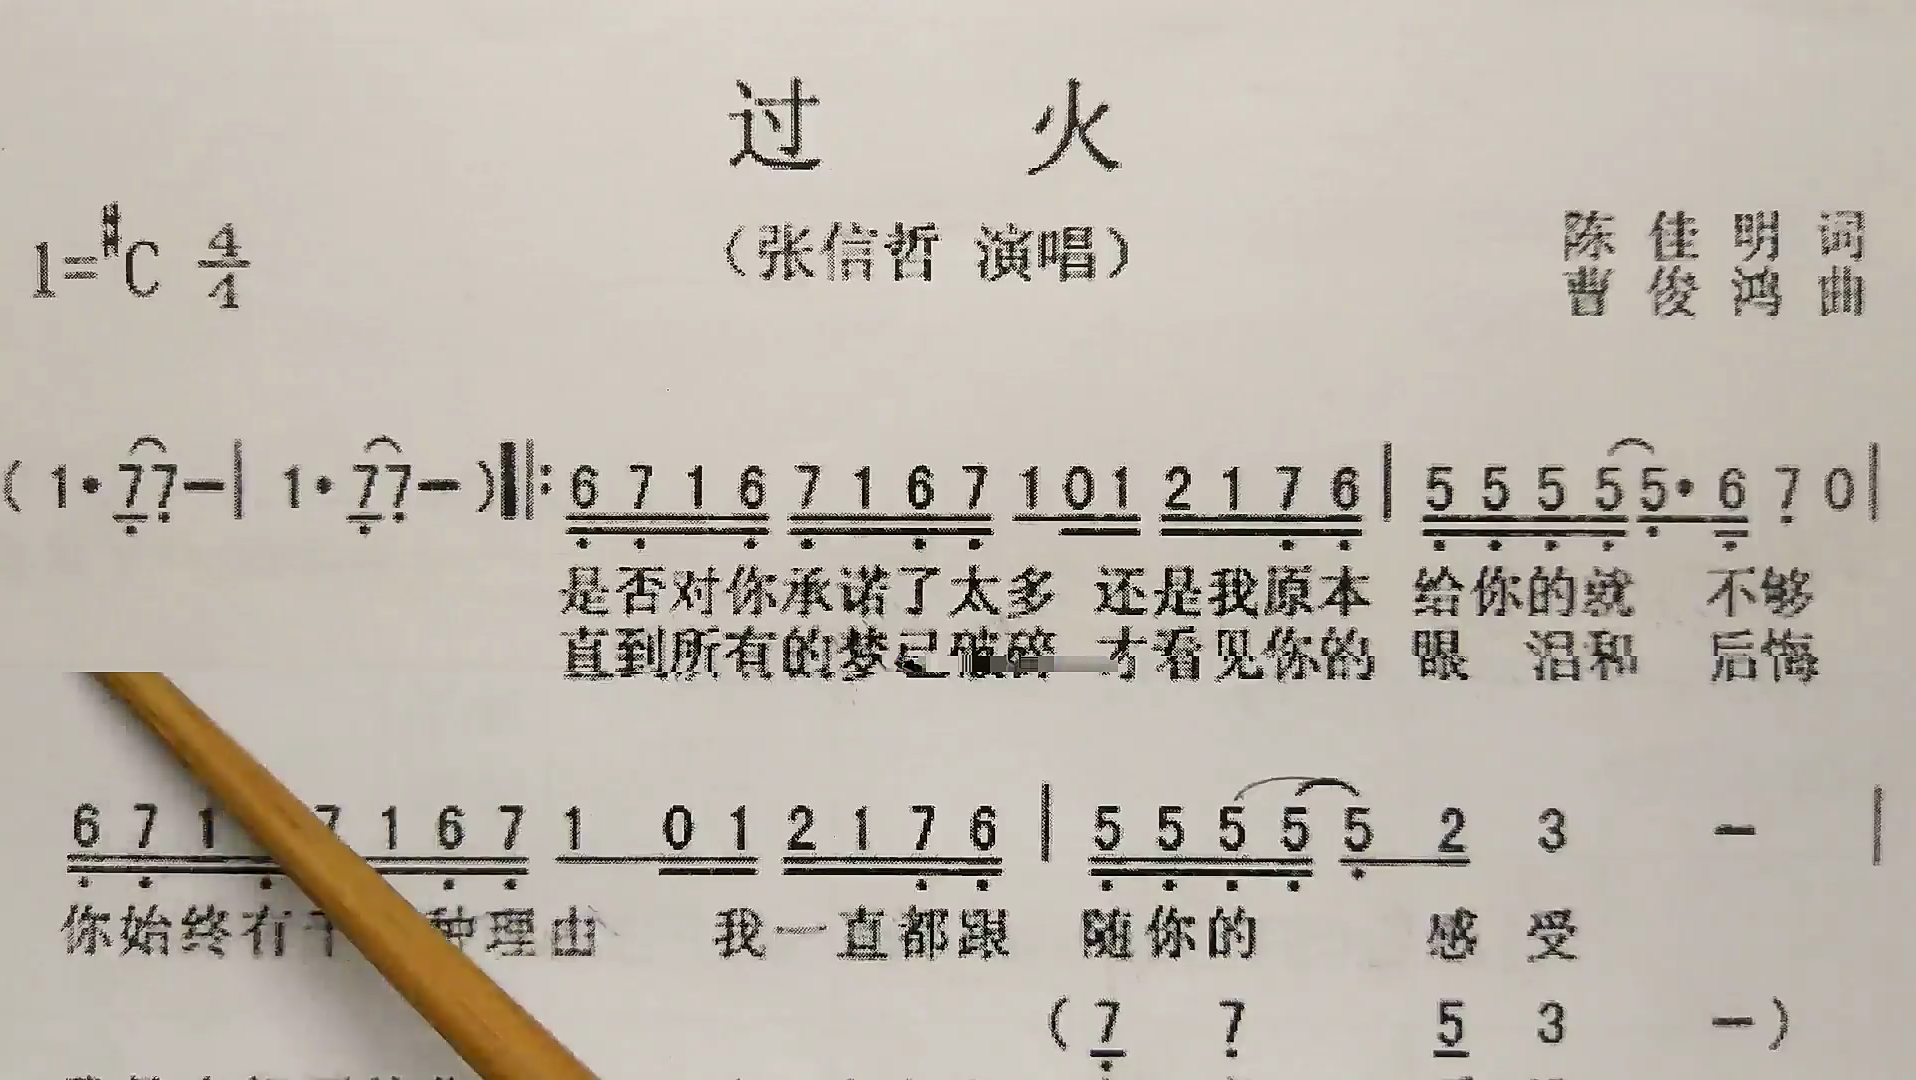 过 火
1=#C 4/4
(张信哲 演唱)
陈 佳 明 词
曹 俊 鸿 曲
( 1· 77 — | 1· 77 — ) ‖: 6 7 1 6 7 1 6 7 1 0 1 2 1 7 6 | 5 5 5 5 5· 6 7 0 |
是否对你承诺了太多 还是我原本 给你的就 不够
直到所有的梦已破碎 才看见你的 眼 泪和 后悔
6 7 1 7 1 6 7 1 0 1 2 1 7 6 | 5 5 5 5 5 2 3 — |
你始终有千 种理由 我一直都跟 随你的 感 受
( 7 7 5 3 — )